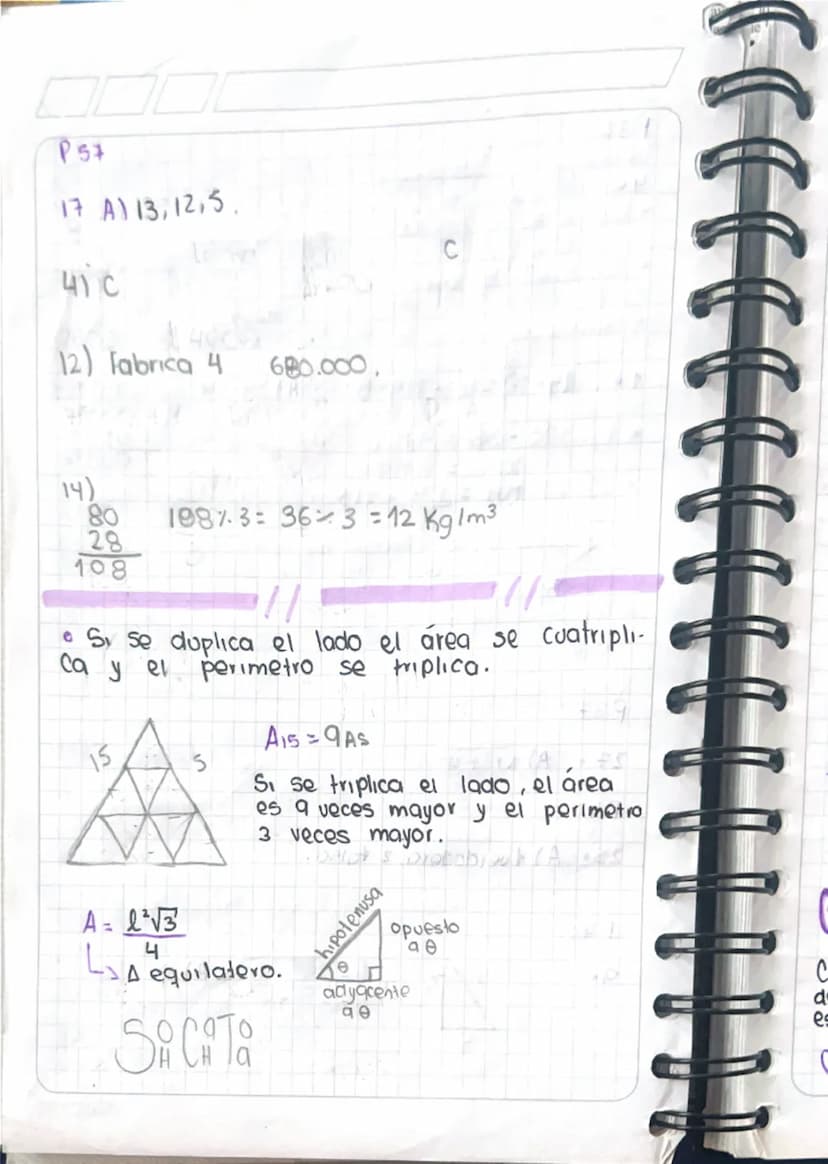 P 57
17 A) 13, 12, 5.
C
4) C
12) Fabrica 4 680.000.
14)
80 108 % 3 = 36 ÷ 3 = 12 Kg/m³
28
108
• Si se duplica el lado el área se cuatripli-
ca y el perimetro se triplica.
A15 = 9A5
15 5
Si se triplica el lado, el área
es 9 veces mayor y el perimetro
3 veces mayor.
A = l²√3
4
↳ Δ equilatero.
hipotenusa
opuesto
a θ
θ
adyacente
a θ
SO CA TO
H H A